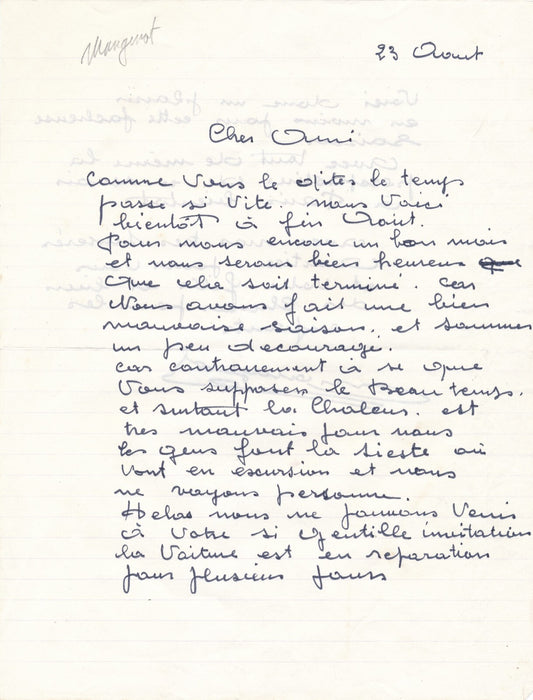 Mangenot
23 Aout
Cher Ami
Comme vous le dites le temps
passe si vite. nous voici
bientôt à fin Aout.
Pour nous encore un bon mois
et nous serons bien heureux
que celà soit terminé. car
nous avons fait une bien
mauvaise saison. et sommes
un peu decouragé.
car contrairement à se que
vous supposer le Beau temps.
et surtout la Chaleur. est
tres mauvais pour nous
les gens font la sieste où
vont en excursion et nous
ne voyons personne.
Helas nous ne pouvons venir
à votre si gentille invitation
la voiture est en reparation
pour plusieurs jours